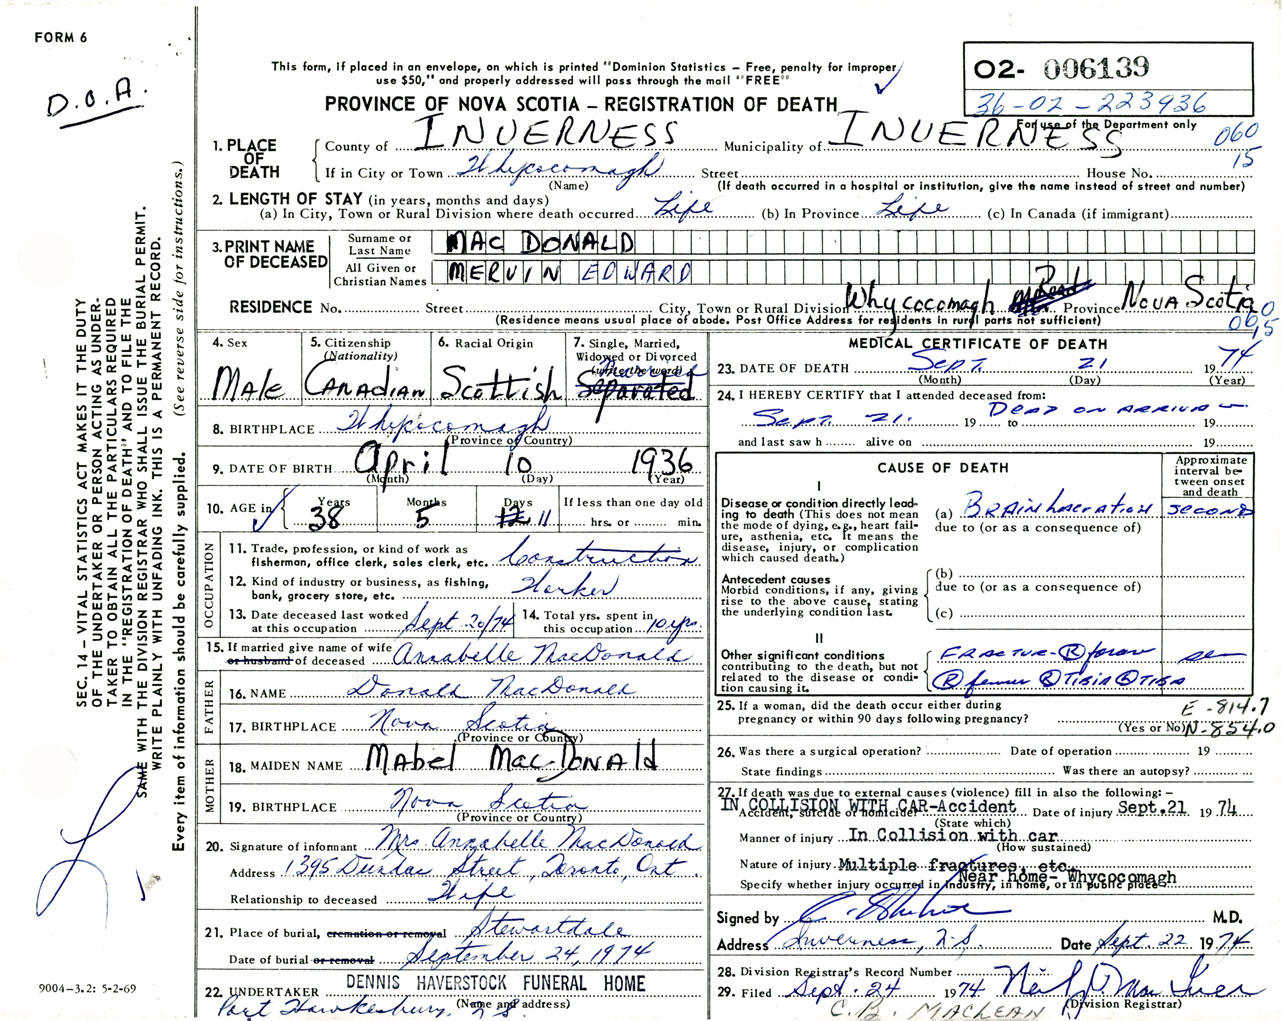 FORM 6
D.O.A.
This form, if placed in an envelope, on which is printed "Dominion Statistics – Free, penalty for improper
use $50," and properly addressed will pass through the mail "FREE"
O2- 006139
36-02-223936
For use of the Department only
PROVINCE OF NOVA SCOTIA – REGISTRATION OF DEATH
060
15
1. PLACE OF DEATH
County of INVERNESS Municipality of INVERNESS
If in City or Town Whycocomagh Street House No.
(Name) (If death occurred in a hospital or institution, give the name instead of street and number)
2. LENGTH OF STAY (in years, months and days)
(a) In City, Town or Rural Division where death occurred Life (b) In Province Life (c) In Canada (if immigrant)
3. PRINT NAME OF DECEASED
Surname or Last Name MAC DONALD
All Given or Christian Names MERVIN EDWARD
RESIDENCE No. Street City, Town or Rural Division Whycocomagh Province NOVA SCOTIA
(Residence means usual place of abode. Post Office Address for residents in rural parts not sufficient)
060
15
4. Sex
MALE
5. Citizenship
(Nationality)
CANADIAN
6. Racial Origin
Scottish
7. Single, Married,
Widowed or Divorced
(write the word)
Married
Separated
8. BIRTHPLACE Whycocomagh
(Province or Country)
9. DATE OF BIRTH April 10 1936
(Month) (Day) (Year)
10. AGE in
Years 38
Months 5
Days 12 11
If less than one day old
hrs. or min.
OCCUPATION
11. Trade, profession, or kind of work as
fisherman, office clerk, sales clerk, etc. Construction
12. Kind of industry or business, as fishing,
bank, grocery store, etc. Worker
13. Date deceased last worked
at this occupation Sept 20/74
14. Total yrs. spent in
this occupation 10 yrs.
15. If married give name of wife
or husband of deceased Annabelle MacDonald
FATHER
16. NAME Donald MacDonald
17. BIRTHPLACE Nova Scotia
(Province or Country)
MOTHER
18. MAIDEN NAME MAbel MacDONALD
19. BIRTHPLACE Nova Scotia
(Province or Country)
20. Signature of informant Mrs Annabelle MacDonald
Address 1395 Dundas Street, Toronto, Ont.
Relationship to deceased Wife
21. Place of burial, cremation or removal Stewartdale
Date of burial or removal September 24, 1974
22. UNDERTAKER DENNIS HAVERSTOCK FUNERAL HOME
(Name and address)
Port Hawkesbury, N.S.
MEDICAL CERTIFICATE OF DEATH
23. DATE OF DEATH Sept. 21 1974
(Month) (Day) (Year)
24. I HEREBY CERTIFY that I attended deceased from:
Sept. 21. 19 to DEAD ON ARRIVAL 19
and last saw h alive on 19
CAUSE OF DEATH
Approximate
interval be-
tween onset
and death
I
Disease or condition directly lead-
ing to death (This does not mean
the mode of dying, e.g., heart fail-
ure, asthenia, etc. It means the
disease, injury, or complication
which caused death.)
(a) BRAIN LACERATION SECOND
due to (or as a consequence of)
Antecedent causes
Morbid conditions, if any, giving
rise to the above cause, stating
the underlying condition last.
(b)
due to (or as a consequence of)
(c)
II
Other significant conditions
contributing to the death, but not
related to the disease or condi-
tion causing it.
FRACTURE - Ⓡ
Ⓡ femur Ⓡ TIBIA
25. If a woman, did the death occur either during
pregnancy or within 90 days following pregnancy?
(Yes or No)
E-814.7
N-854.0
26. Was there a surgical operation? Date of operation 19
State findings Was there an autopsy?
27. If death was due to external causes (violence) fill in also the following: –
IN COLLISION WITH CAR-Accident
Accident, suicide or homicide? Date of injury Sept.21 1974
(State which)
Manner of injury In Collision with car
(How sustained)
Nature of injury Multiple fractures, etc.
Near home- Whycocomagh
Specify whether injury occurred in industry, in home, or in public place
Signed by M.D.
Address Inverness, N.S. Date Sept. 22 1974
28. Division Registrar's Record Number
29. Filed Sept. 24 1974
(Division Registrar)
C. B. MACLEAN
SEC. 14 – VITAL STATISTICS ACT MAKES IT THE DUTY
OF THE UNDERTAKER OR PERSON ACTING AS UNDER-
TAKER TO OBTAIN ALL THE PARTICULARS REQUIRED
IN THE "REGISTRATION OF DEATH" AND TO FILE THE
SAME WITH THE DIVISION REGISTRAR WHO SHALL ISSUE THE BURIAL PERMIT.
WRITE PLAINLY WITH UNFADING INK. THIS IS A PERMANENT RECORD.
Every item of information should be carefully supplied. (See reverse side for instructions.)
9004-3.2: 5-2-69